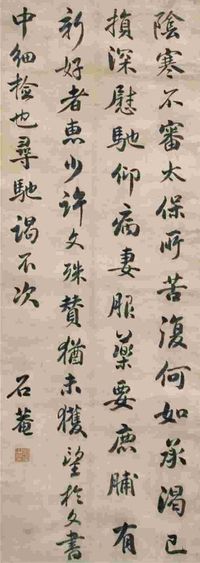 陰寒不審太保所苦復何如承渴已
損深慰馳仰病妻服藥要鹿脯有
新好者惠少許文殊贊猶未獲望於文書
中細撿也尋馳謁不次
石菴